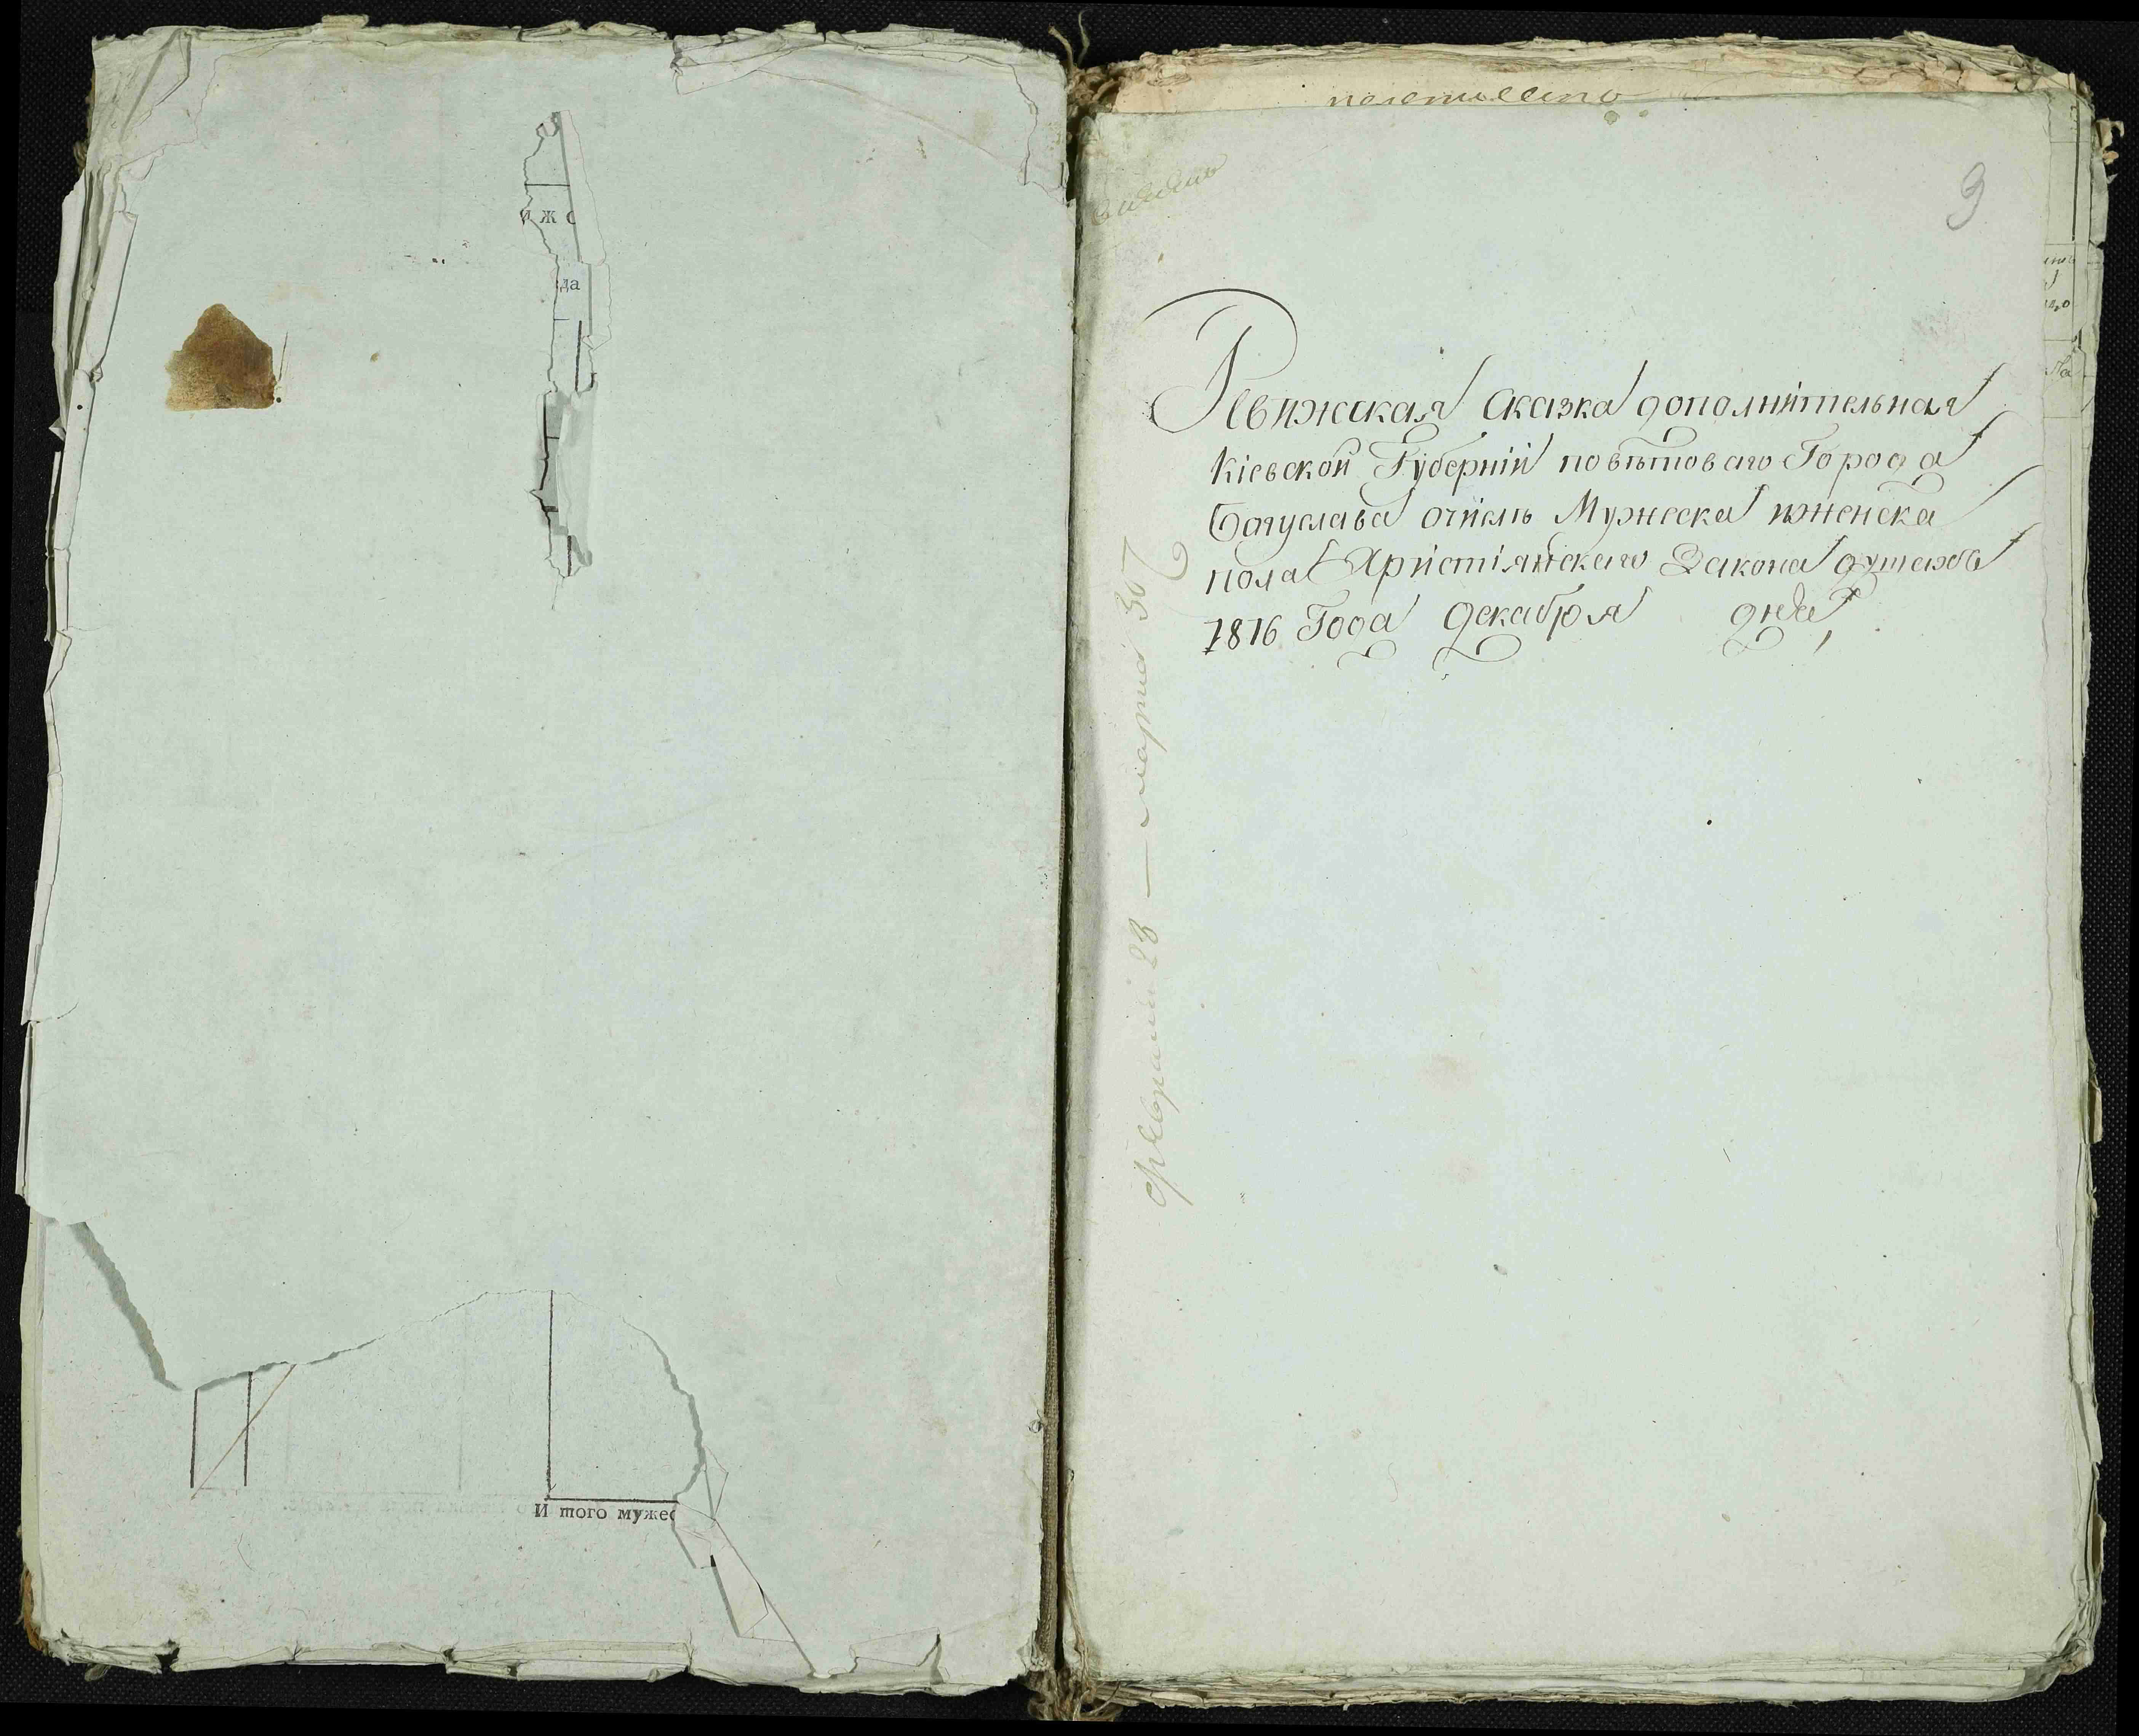 и ж с
да
И того мужес
9
Ревижская сказка дополнительная
Кіевской Губерніи повѣтоваго Города
Богуслава очислѣ Мужеска иженска
пола Христіянскаго Закона душахъ
1816 Года Декабря дня
февраля 28 — марта 30